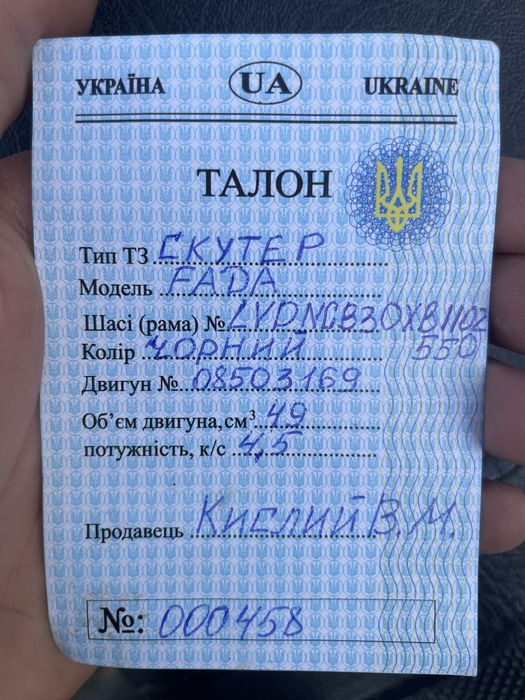 УКРАЇНА UA UKRAINE
ТАЛОН
Тип ТЗ СКУТЕР
Модель FADA
Шасі (рама) № LYDNGB30XB1102
Колір ЧОРНИЙ 550
Двигун № 08503169
Об'єм двигуна, см³ 49
потужність, к/с 4,5
Продавець Кислий В.М.
№: 000458